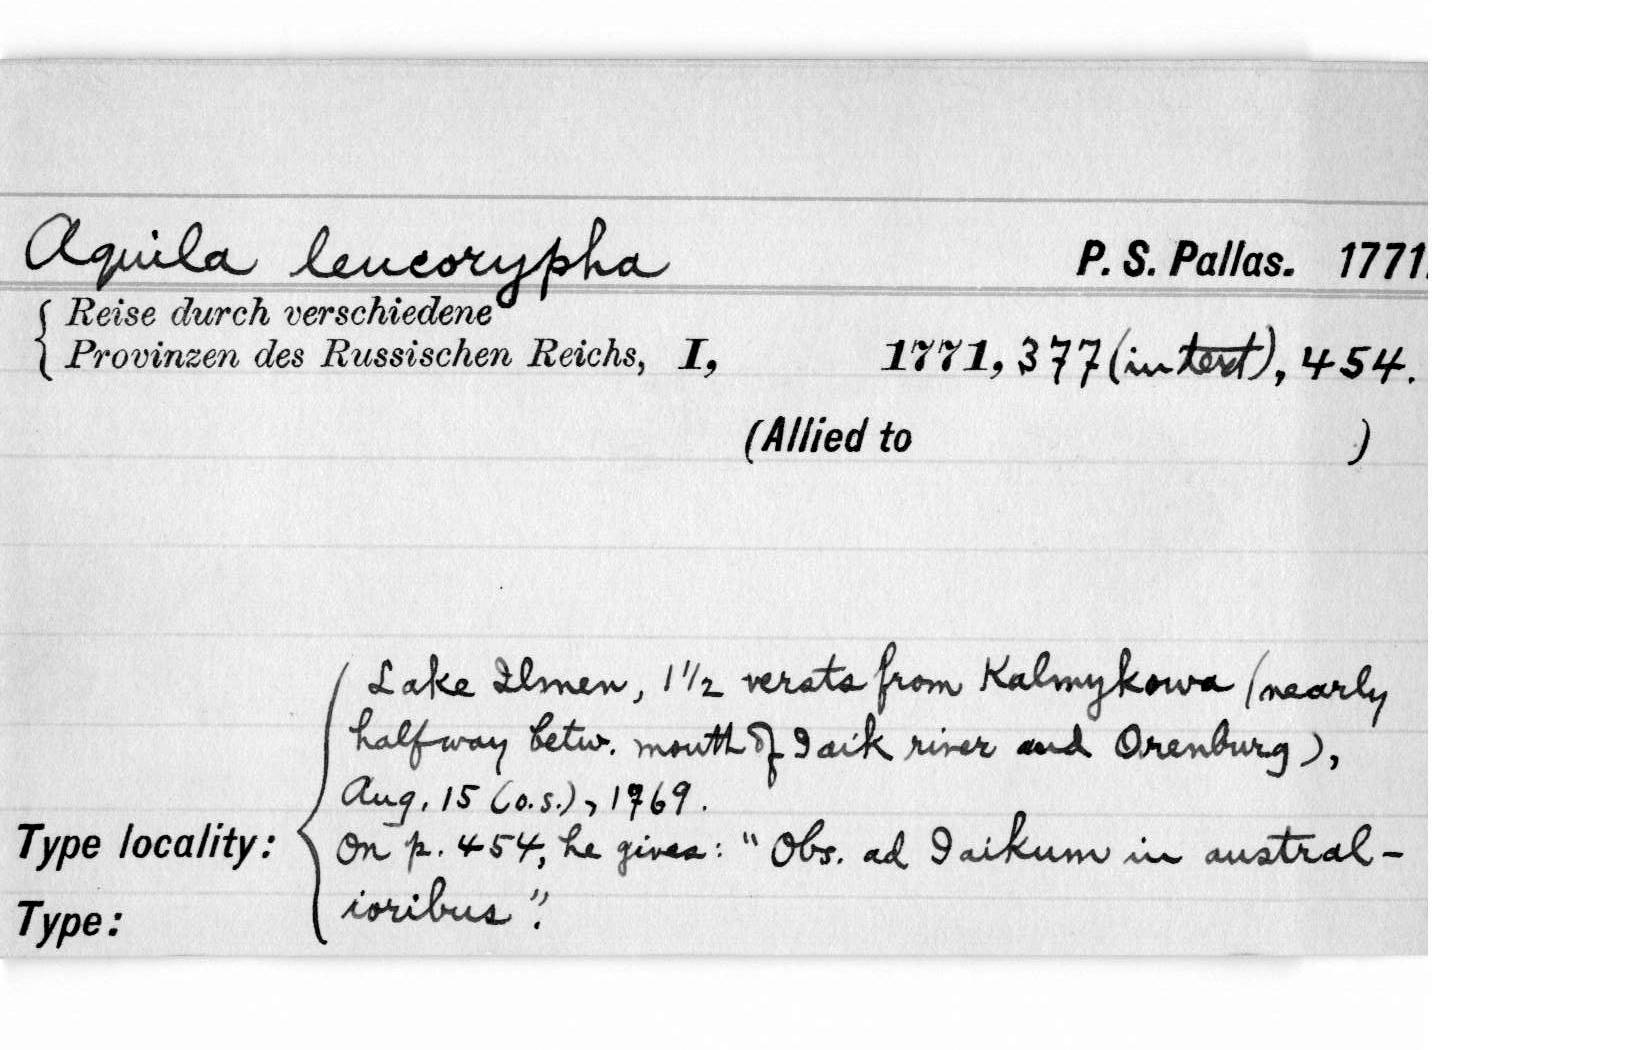 Aquila leucorypha P. S. Pallas. 1771.
Reise durch verschiedene
Provinzen des Russischen Reichs, I, 1771, 377 (in text), 454.
(Allied to )
Lake Ilmen, 1 1/2 versts from Kalmykowa (nearly
halfway betw. mouth of Iaik river and Orenburg),
Aug. 15 (o.s.), 1769.
Type locality: On p. 454, he gives: "Obs. ad Iaikum in austral-
Type: ioribus".